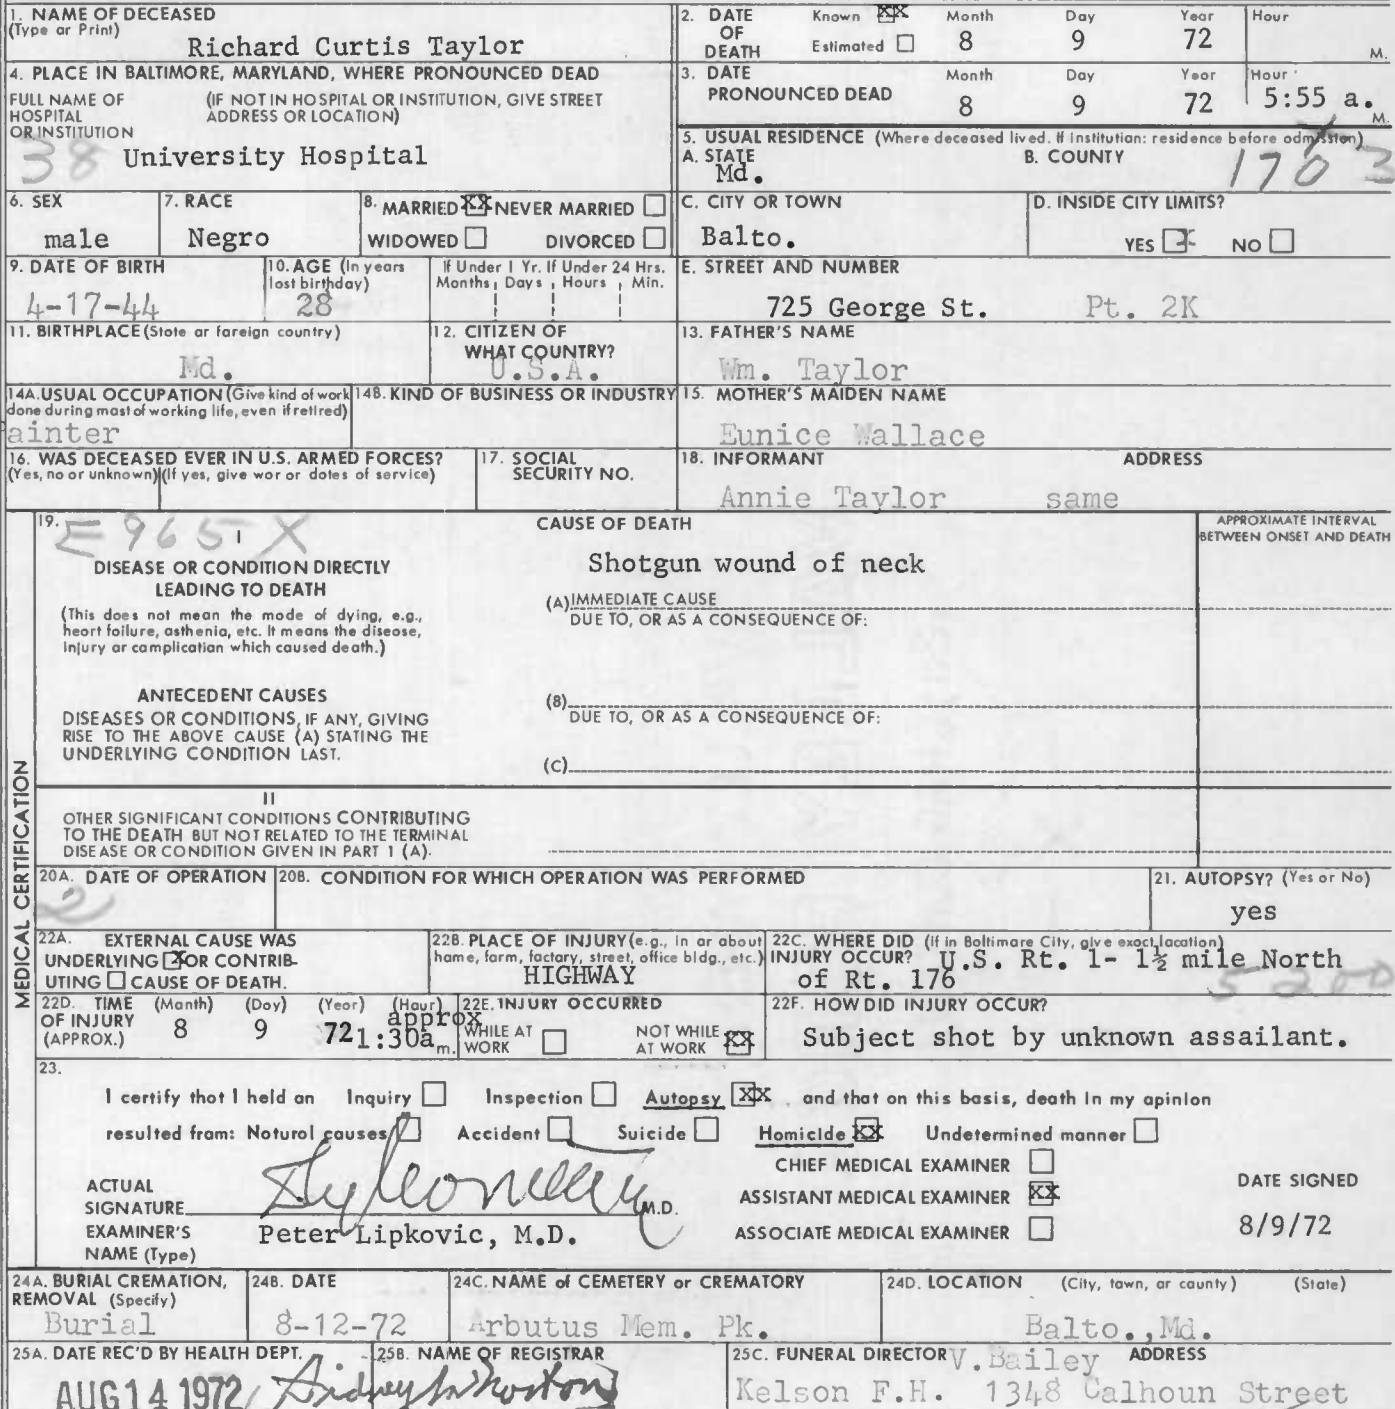 1. NAME OF DECEASED
(Type or Print)
Richard Curtis Taylor
2. DATE OF DEATH Known XX Estimated Month 8 Day 9 Year 72 Hour M.
4. PLACE IN BALTIMORE, MARYLAND, WHERE PRONOUNCED DEAD
FULL NAME OF HOSPITAL OR INSTITUTION (IF NOT IN HOSPITAL OR INSTITUTION, GIVE STREET ADDRESS OR LOCATION)
38 University Hospital
3. DATE PRONOUNCED DEAD Month 8 Day 9 Year 72 Hour 5:55 a. M.
5. USUAL RESIDENCE (Where deceased lived. If institution: residence before admission)
A. STATE Md. B. COUNTY 1703
6. SEX male
7. RACE Negro
8. MARRIED XX NEVER MARRIED
WIDOWED DIVORCED
C. CITY OR TOWN Balto.
D. INSIDE CITY LIMITS?
YES X NO
9. DATE OF BIRTH 4-17-44
10. AGE (In years last birthday) 28
If Under 1 Yr. Months Days If Under 24 Hrs. Hours Min.
E. STREET AND NUMBER
725 George St. Pt. 2K
11. BIRTHPLACE (State or foreign country)
Md.
12. CITIZEN OF WHAT COUNTRY?
U.S.A.
13. FATHER'S NAME
Wm. Taylor
14A. USUAL OCCUPATION (Give kind of work done during most of working life, even if retired)
Painter
14B. KIND OF BUSINESS OR INDUSTRY
15. MOTHER'S MAIDEN NAME
Eunice Wallace
16. WAS DECEASED EVER IN U.S. ARMED FORCES?
(Yes, no or unknown) (If yes, give war or dates of service)
17. SOCIAL SECURITY NO.
18. INFORMANT ADDRESS
Annie Taylor same
MEDICAL CERTIFICATION
19. E965X
CAUSE OF DEATH
APPROXIMATE INTERVAL BETWEEN ONSET AND DEATH
I
DISEASE OR CONDITION DIRECTLY
LEADING TO DEATH
(This does not mean the mode of dying, e.g.,
heart failure, asthenia, etc. It means the disease,
injury or complication which caused death.)
Shotgun wound of neck
(A) IMMEDIATE CAUSE
DUE TO, OR AS A CONSEQUENCE OF:
ANTECEDENT CAUSES
DISEASES OR CONDITIONS, IF ANY, GIVING
RISE TO THE ABOVE CAUSE (A) STATING THE
UNDERLYING CONDITION LAST.
(B)
DUE TO, OR AS A CONSEQUENCE OF:
(C)
II
OTHER SIGNIFICANT CONDITIONS CONTRIBUTING
TO THE DEATH BUT NOT RELATED TO THE TERMINAL
DISEASE OR CONDITION GIVEN IN PART 1 (A).
20A. DATE OF OPERATION
2
20B. CONDITION FOR WHICH OPERATION WAS PERFORMED
21. AUTOPSY? (Yes or No)
yes
22A. EXTERNAL CAUSE WAS
UNDERLYING X OR CONTRIB-
UTING CAUSE OF DEATH.
22B. PLACE OF INJURY (e.g., in or about
home, farm, factory, street, office bldg., etc.)
HIGHWAY
22C. WHERE DID (If in Baltimore City, give exact location)
INJURY OCCUR? U.S. Rt. 1- 1½ mile North
of Rt. 176 5200
22D. TIME OF INJURY (APPROX.) (Month) 8 (Day) 9 (Year) 72 (Hour) approx 1:30a m.
22E. INJURY OCCURRED
WHILE AT WORK NOT WHILE AT WORK XX
22F. HOW DID INJURY OCCUR?
Subject shot by unknown assailant.
23.
I certify that I held an Inquiry Inspection Autopsy XX and that on this basis, death in my opinion
resulted from: Natural causes Accident Suicide Homicide XX Undetermined manner
CHIEF MEDICAL EXAMINER
ACTUAL SIGNATURE M.D.
ASSISTANT MEDICAL EXAMINER XX
DATE SIGNED
EXAMINER'S NAME (Type) Peter Lipkovic, M.D.
ASSOCIATE MEDICAL EXAMINER
8/9/72
24A. BURIAL CREMATION, REMOVAL (Specify)
Burial
24B. DATE
8-12-72
24C. NAME of CEMETERY or CREMATORY
Arbutus Mem. Pk.
24D. LOCATION (City, town, or county) (State)
Balto.,Md.
25A. DATE REC'D BY HEALTH DEPT.
AUG 14 1972
25B. NAME OF REGISTRAR
25C. FUNERAL DIRECTOR V. Bailey ADDRESS
Kelson F.H. 1348 Calhoun Street